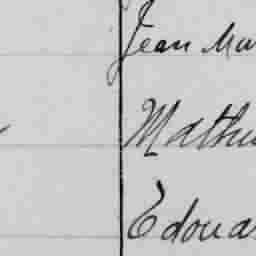 Jean Mar
Mathu
Edouar